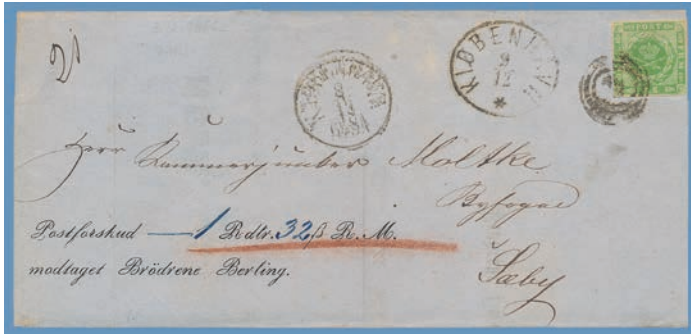 21
KIØBENHAVN
9
12
POST
Herr Kammerjunker Moltke
Byfoged
i
Sæby
Postforskud — 1 Rdlr. 32 ß R. M.
modtaget Brödrene Berling.